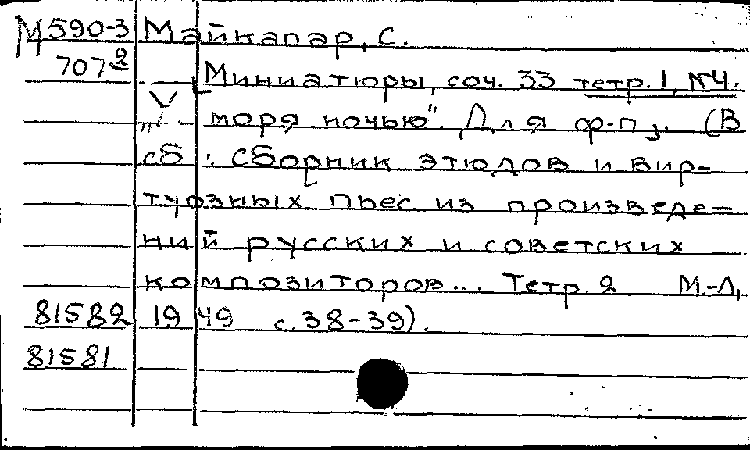 М590-3 Майкапар, С.
707² Миниатюры, соч. 33 тетр. 1, №4.
моря ночью". Для ф-п. (В
сб.: Сборник этюдов и вир-
туозных пьес из произведе-
ний русских и советских
композиторов... Тетр. 2 М.-Л,
81582 1949 с. 38-39).
81581